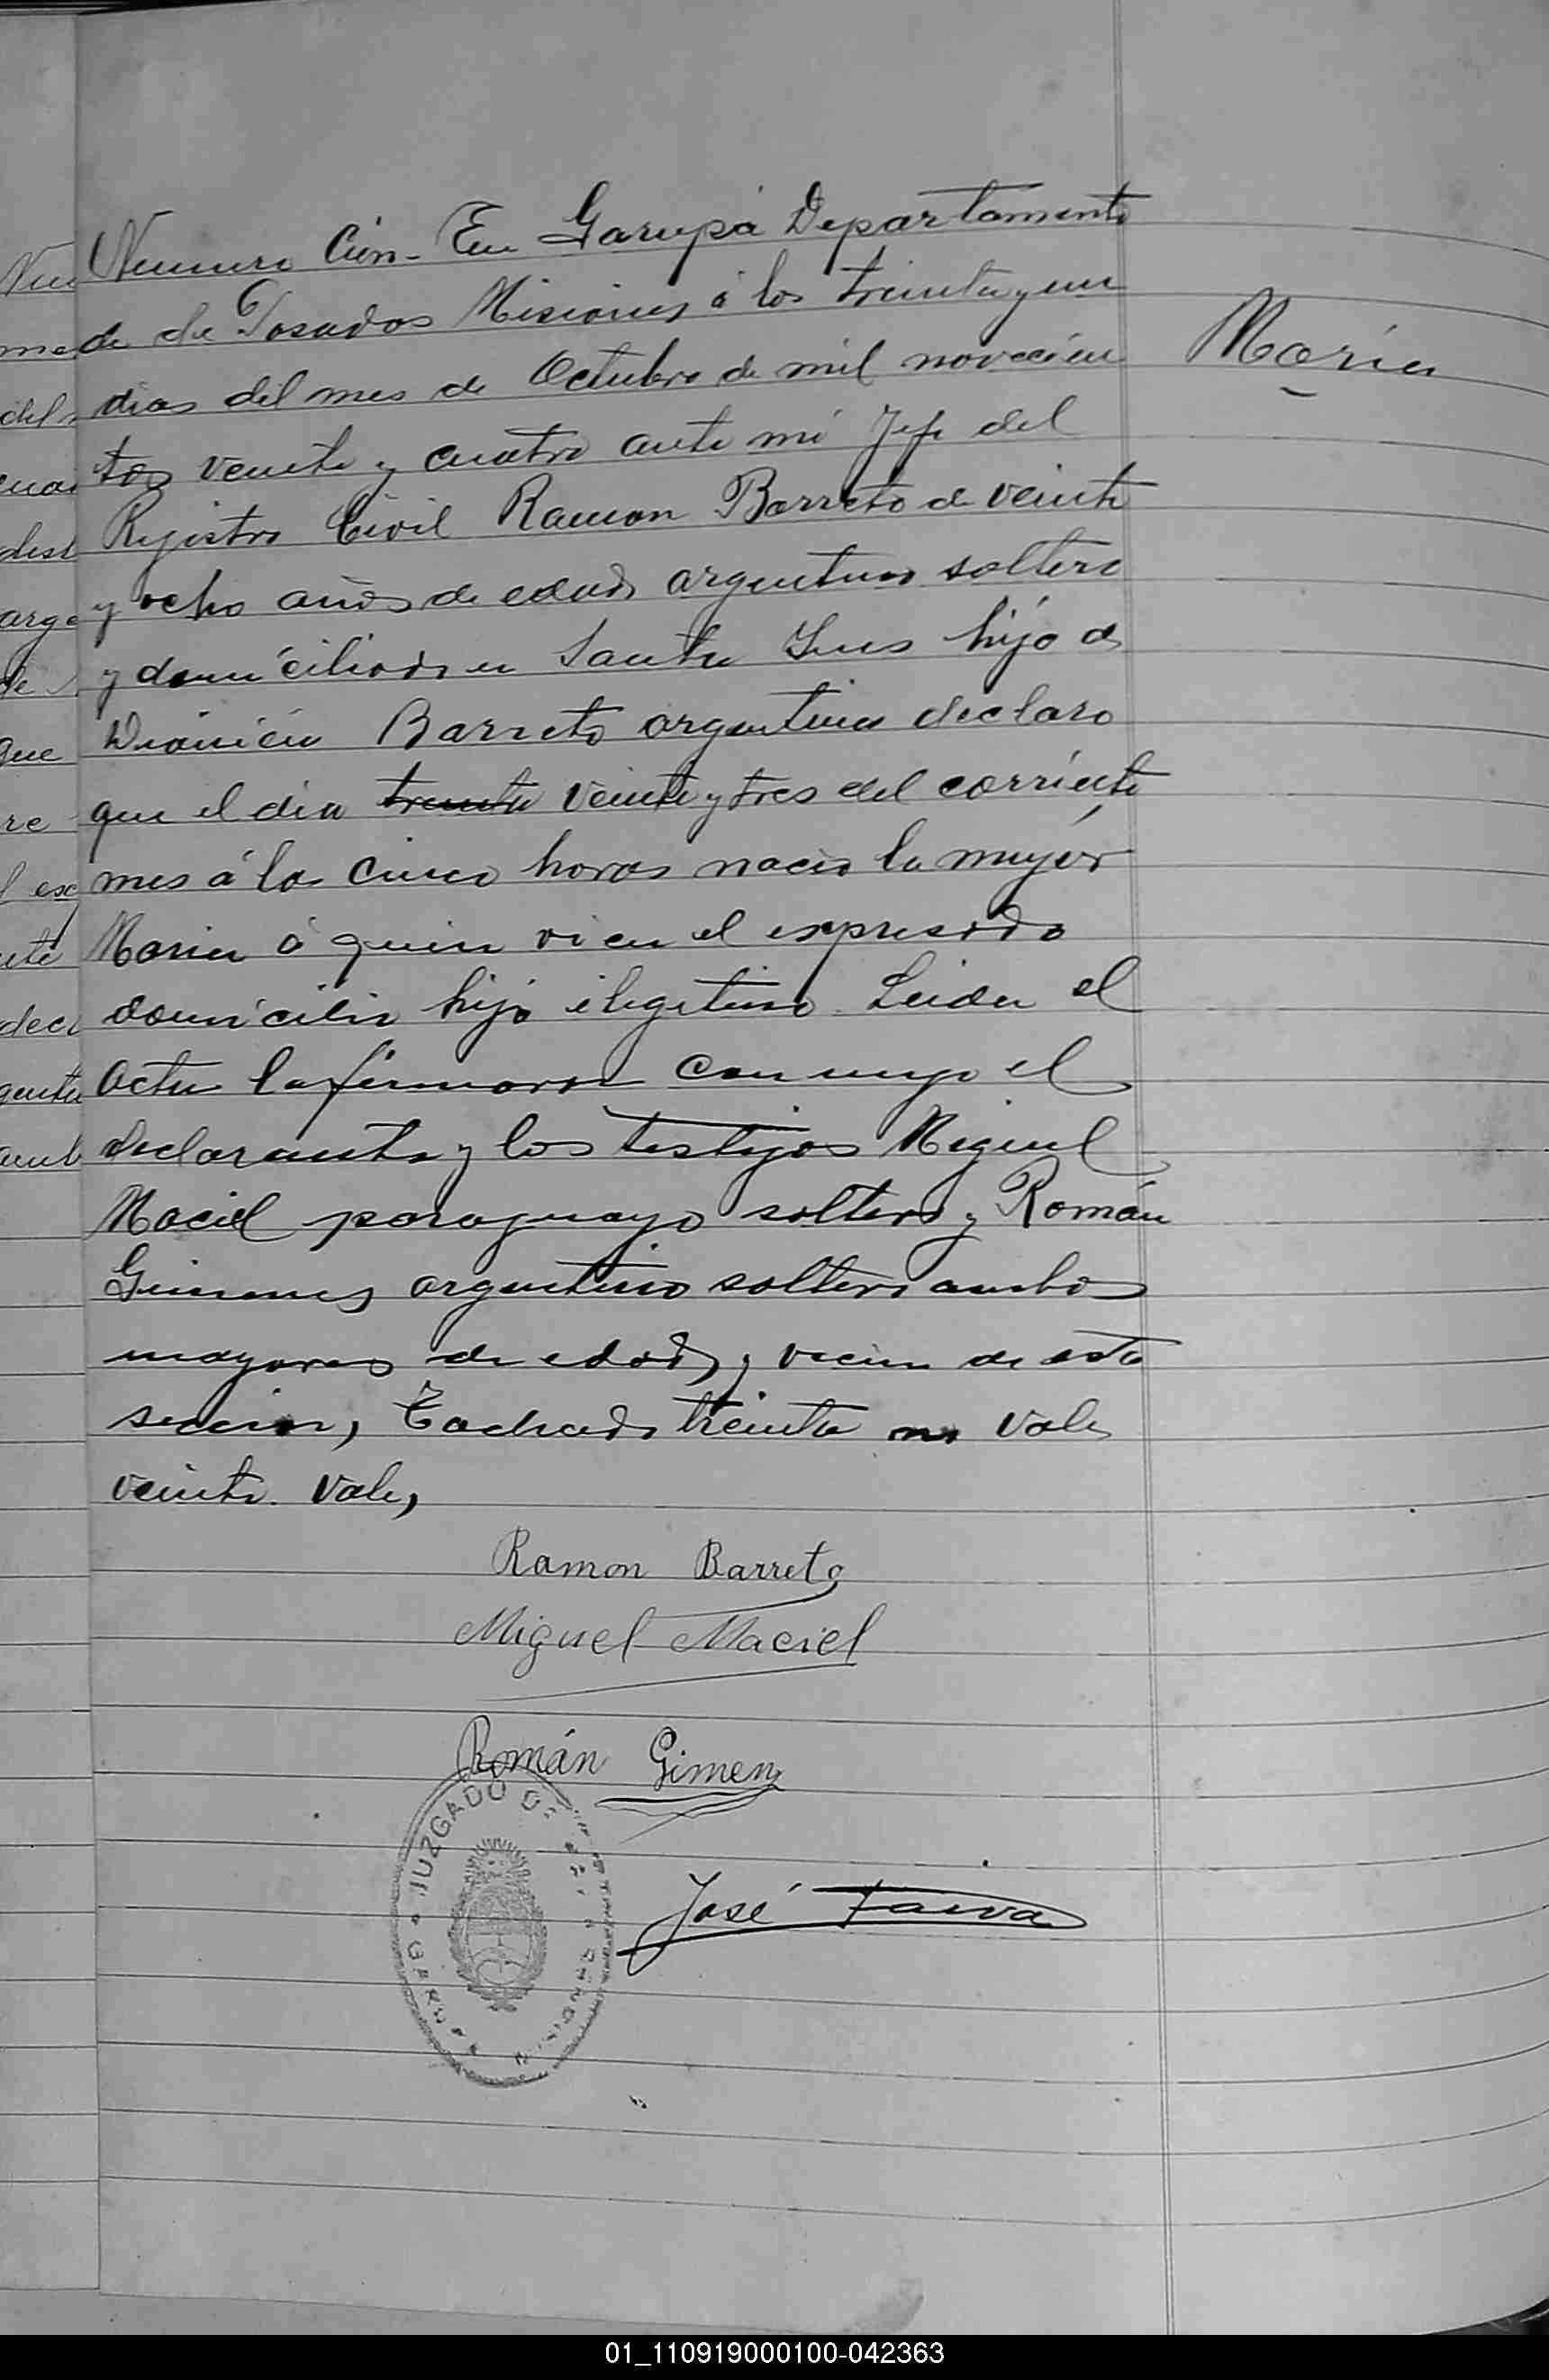 Numero Cien - En Garupá Departamento
de de Posadas Misiones á los treinta y un
dias del mes de Octubre de mil novecien
tos veinte y cuatro ante mi Jefe del
Registro Civil Ramon Barreto de veinte
y ocho años de edad argentino soltero
y domiciliado en Santa Ines hijo de
Dionicia Barreto argentina declaro
que el dia treinta veinte y tres del corriente
mes á las cinco horas nacio la mujer
Maria á quien vi en el expresado
domicilio hijo ilegitimo. Leida el
Acta la firmaron conmigo el
declarante y los testigos Miguel
Maciel paraguayo soltero y Román
Gimenes argentino soltero ambos
mayores de edad, y vecin de esta
seccion, Tachado treinta no vale
veinte. Vale,
Maria
Ramon Barreto
Miguel Maciel
Román Gimenz
José Paiva
JUZGADO DE
GARUPA
01_110919000100-042363